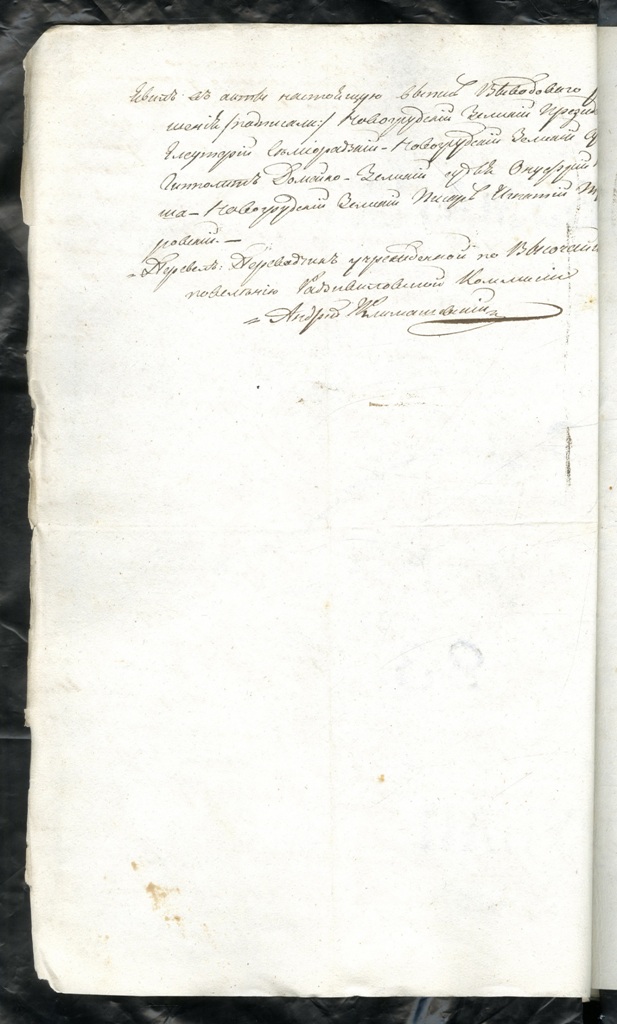 явилъ въ актѣ настоящую выпись Выводоваго
шенія /подписали:/ Новогрудскій Земскій Прези
Елеутерій Новогрудскій Земскій
Гиполитъ Домейко - Земскій судья Онуфрій
ша - Новогрудскій Земскій Писарь Игнатій
ровскій. -
Перевелъ: Переводчикъ учрежденной по Высочай
повелѣнію Радзивиловской Коммисіи
Андрей Климашевскій